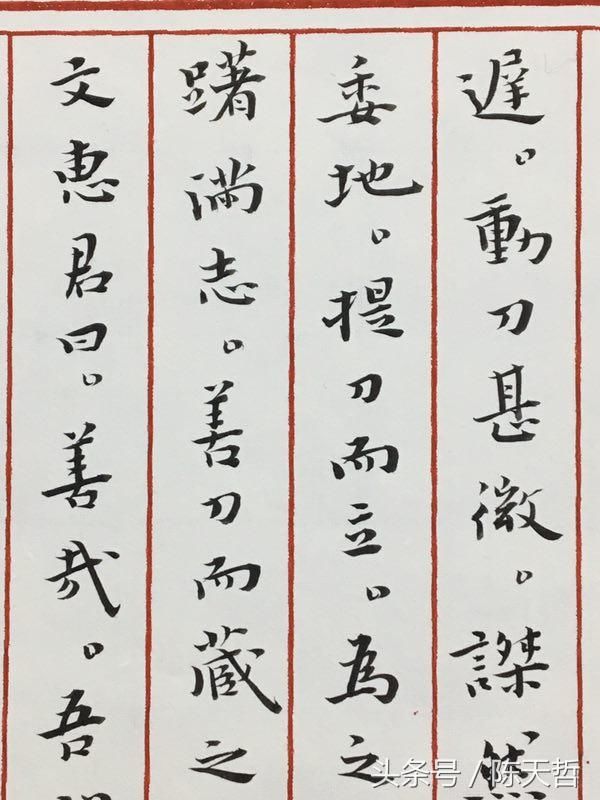 遲。動刀甚微。謋然
委地。提刀而立。為之
躇滿志。善刀而蔵之
文惠君曰。善哉。吾
头条号／陈天哲